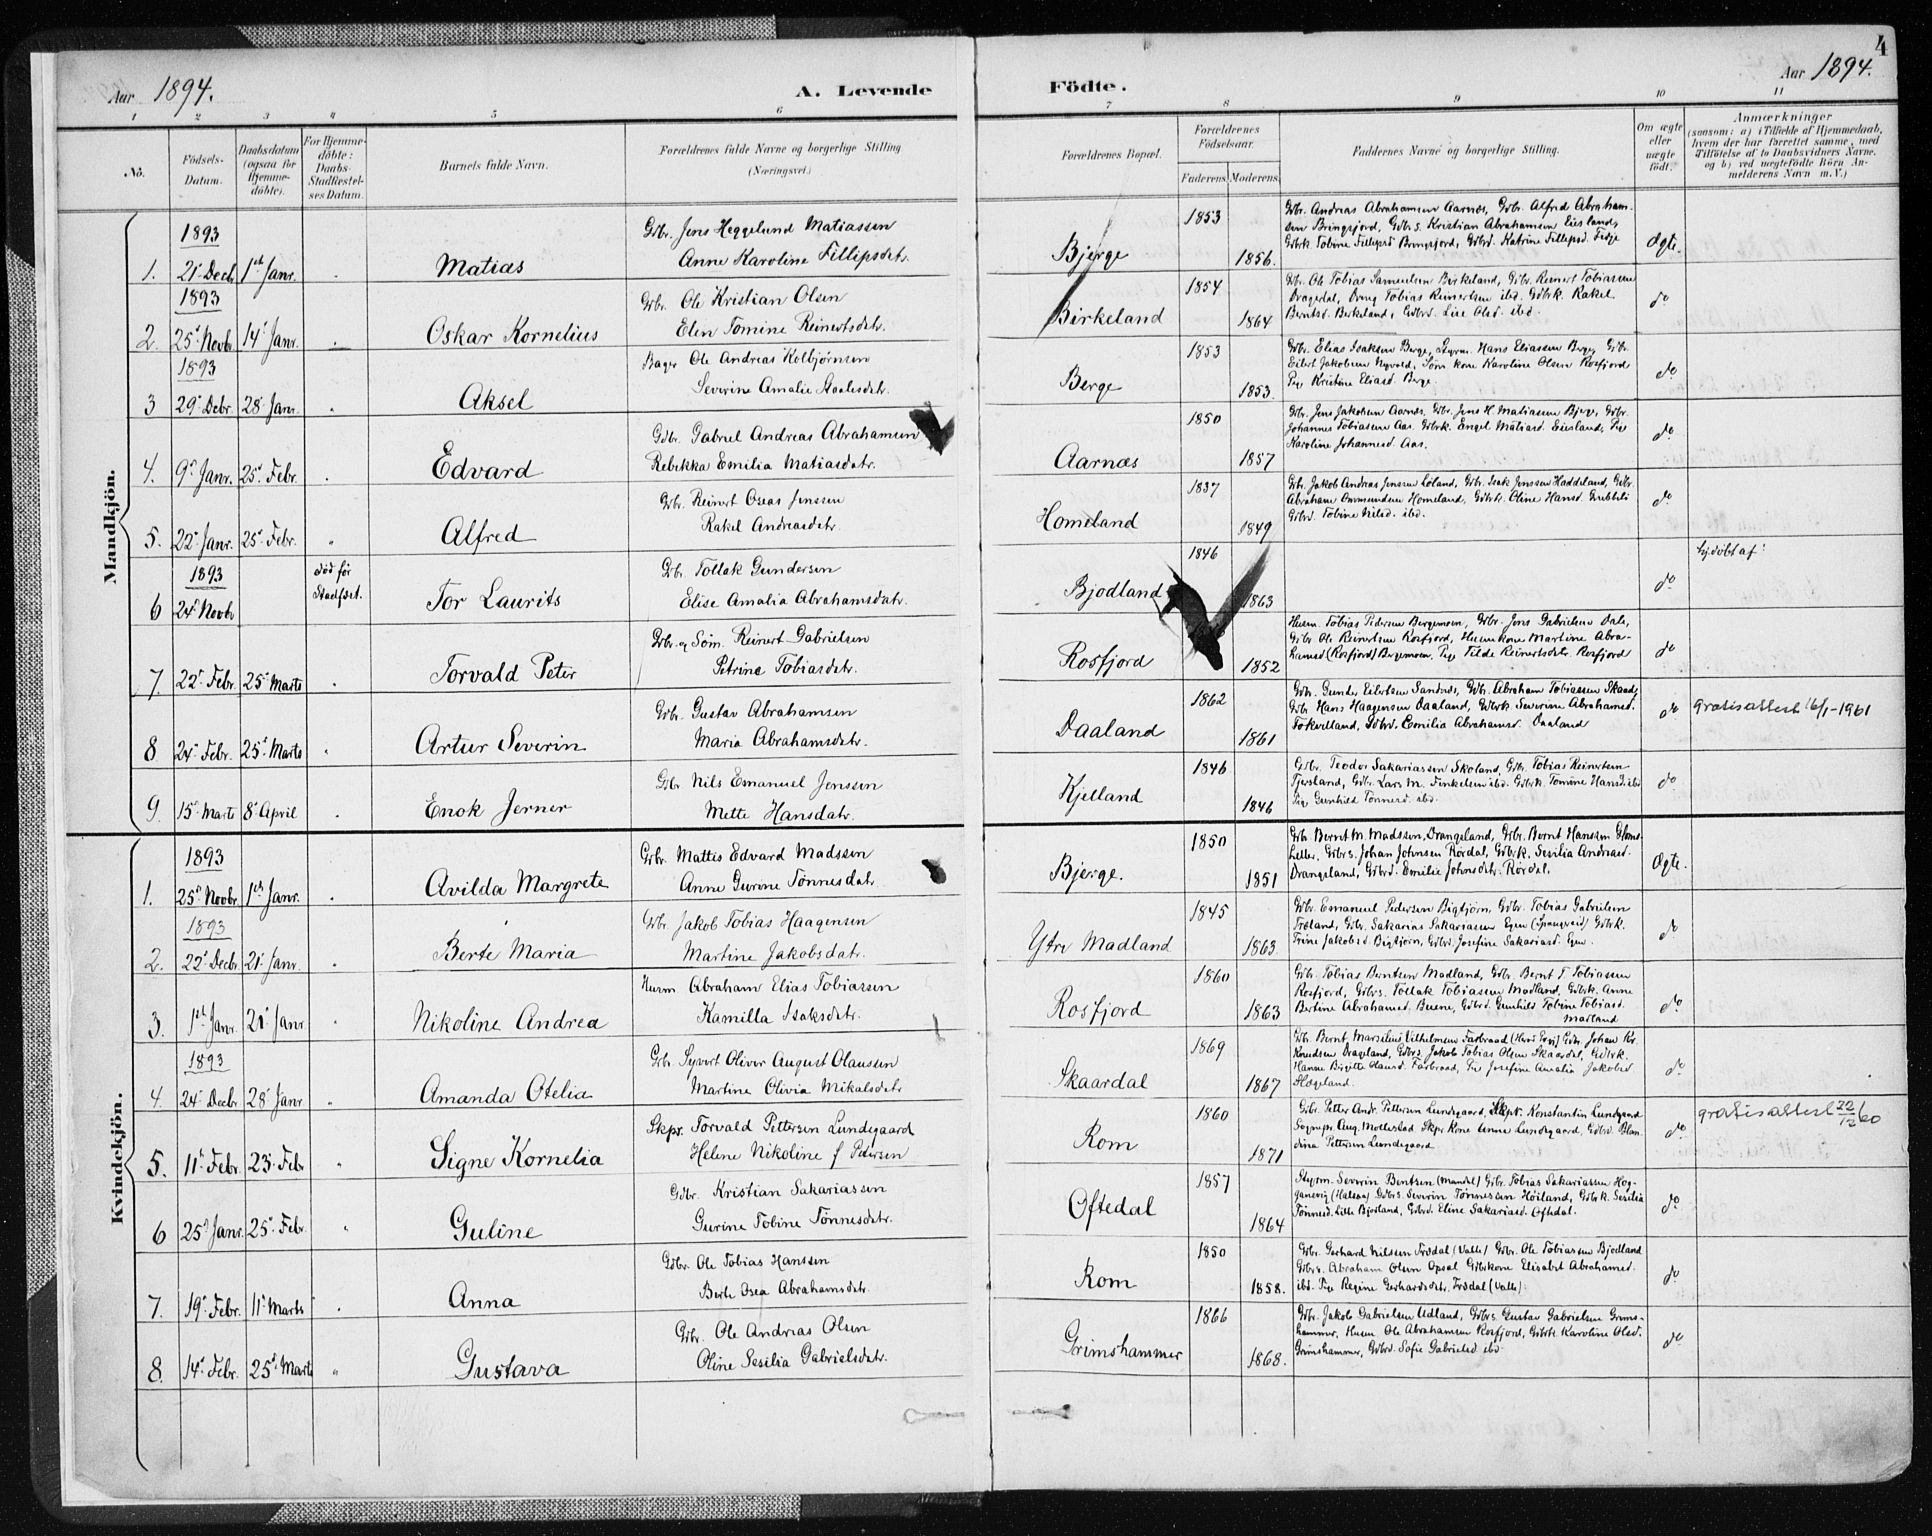 4
Aar 1894. A. Levende Födte. Aar 1894.
1 2 3 4 5 6 7 8 9 10 11
No. Födsels-Datum. Daabsdatum (ogsaa for Hjemme-döbte). For Hjemme-döbte: Daabs-Stadfæstel-ses Datum. Barnets fulde Navn. Forældrenes fulde Navne og borgerlige Stilling (Næringsvei.) Forældrenes Bopæl. Forældrenes Födselsaar. Faderens. Moderens. Faddernes Navne og borgerlige Stilling. Om ægte eller uægte födt. Anmærkninger (saasom: a) i Tilfælde af Hjemmedaab, hvem der har forrettet samme, med Tilföielse af to Daabsvidners Navne, og b) ved uægtefödte Börn An-melderens Navn m. V.)
Mandkjön.
1893
1. 21 Decb 1st Janr. Matias
Gbr. Jens Heggelund Matiassen
Anne Karoline Fillipsdatr.
Bjerge 1853 1856.
Gbr. Andreas Abrahamsen Aarnæs, Gbr. Alfred Abraham-
sen Bringsjord, Gdbrs. Kristian Abrahamsen Eisland,
Gdbrk. Tobine Fillipsd Bringsjord, Gdbrd. Katrine Fillipsd. Fedje
Ægte.
1893
2. 25 Novbr 14 Janr. Oskar Kornelius
Gbr. Ole Kristian Olsen
Elen Tomine Reinertsdtr.
Birkeland 1854 1864
Gbr. Ole Tobias Samuelsen Birkeland, Gbr. Reinert Tobiassen
Dragedal, Dreng Tobias Reinertsen ibd. Gdbrk. Rakel
Berntsd. Birkeland, Gdbrd. Lise Olsd. ibd.
do
1893
3 29 Debr. 28 Janr. Aksel
Bager Ole Andreas Kolbjørnsen
Severine Amalie Staalesdtr.
Berge 1853 1853.
Gbr. Elias Isaksen Berge, Styrm. Hans Eliassen Berge, Gbr.
Eilert Jakobsen Nyvold, Søm. kone Karoline Olsen Rosfjord
Pige Kristine Eliasd. Berge.
do
4. 9 Janr. 25 Febr. Edvard
Gdbr. Gabriel Andreas Abrahamsen
Rebekka Emilia Matiasdatr.
Aarnæs 1850 1857
Gbr. Jens Jakobsen Aarnæs, Gbr. Jens H. Matiassen Bjerge, Gdbr.
Johannes Tobiassen Aas. Gdbrk. Engel Matiasd. Eiesland, Pige
Karoline Johannesd. Aas.
do
5. 22 Janr. 25 Febr. Alfred
Gbr. Reinert Oseas Jenssen
Rakel Andreasdatr.
Homeland 1837 1849
Gbr. Jakob Andreas Jenssen Loland, Gbr. Isak Jenssen Haddeland, Gdbr.
Abraham Ommundsen Homeland, Gdbrk. Oline Hansd.
Gdbrd. Tobine Nilsd. ibd.
do
1893
6 24 Novbr død før Stadfæst. Tor Laurits
Gbr. Tollak Gundersen
Elise Amalia Abrahamsdatr.
Bjodland 1846 1863
do hj.døbt af:
7. 22 Febr. 25 Marts Torvald Peter
Gbr. og Søm. Reinert Gabrielsen
Petrine Tobiasdatr.
Rosfjord 1852
Husm. Tobias Pedersen Bergemoen, Gdbr. Jens Gabrielsen Dale,
Gbr. Ole Reinertsen Rosfjord, Husm.kone Martine Abra-
hamsd (Rosfjord) Bergemoen, Pige Tilde Reinertsdatr. Rosfjord
do
8 24 Febr. 25 Marts Artur Severin
Gdbr. Gustav Abrahamsen
Maria Abrahamsdatr.
Daaland 1862 1861
Gbr. Gunder Eilertsen Sandnæs, Gdbr. Abraham Tobiassen Skaad,
Gdbr Hans Haagensen Daaland, Gdbrk. Severine Abrahamsd.
Torkelland, Gdbrd. Emilia Abrahamsd. Daaland
do gratisattest 16/1-1961
9. 15 Marts 8 April Enok Jerner
Gdbr. Nils Emanuel Jenssen
Mette Hansdatr.
Kjelland 1846 1846
Gdbr. Teodor Sakariassen Skoland, Gdbr. Tobias Reinertsen
Tjersland, Gdbr. Lars M. Finkelsen ibd. Gdbrk Tomine Hansd. ibd
Pige Gunhild Tønnesd. ibd.
do
Kvindekjön.
1893
1. 25 Novbr. 1st Janr. Avilda Margrete
Gbr. Mattis Edvard Madssen
Anne Gurine Tønnesdatr.
Bjerge. 1850 1851
Gbr. Bernt M. Madssen, Drangeland, Gdbr. Bernt Hanssen
Gdbrs. Johan Johnsen Rørdal, Gdbrk. Sesilia Andreasd.
Drangeland, Gdbrd. Emilie Johnsdtr. Rørdal.
Ægte.
1893
2. 22 Decbr. 21 Janr. Berte Maria
Gbr. Jakob Tobias Haagensen
Martine Jakobsdatr.
Ytre Madland 1845 1863.
Gdbr. Emanuel Pedersen Bigtjørn, Gdbr. Tobias Gabrielsen
Træland, Gdbr. Sakarias Sakariassen Egen Gdbrk.
Trine Jakobsd. Bigtjørn, Gdbrd. Josefine Sakariasd. Egen.
do
3. 1st Janr. 21 Janr. Nikoline Andrea
Husm Abraham Elias Tobiassen
Kamilla Isaksdatr.
Rosfjord 1860 1863
Gbr. Tobias Berntsen Madland, Gdbr. Bernt T. Tobiassen
Rosfjord, Gdbrs. Tollak Tobiassen Madland, Gdbrk. Anne
Bertine Abrahamsd. Buene, Gdbrd. Gunhild Tobine Tobiasd.
Madland
do
1893
4. 24 Decbr 28 Janr Amanda Otelia
Gbr. Syvert Oliver August Olaussen
Martine Olivia Mikalsdatr
Skaardal 1869 1867
Gbr. Bernt Marselius Vilhelmsen Farbraad Gdbr. Johan Kr.
Knudsen Drageland, Gdbrs. Jakob Tobias Olsen Skaardal, Gdbrk.
Hanne Birgitte Hansd. Farbraad, Pige Josefine Amalia Jakobsd
Slægeland.
do
5. 11 Febr. 23 Febr Signe Kornelia
Skpr. Torvald Pettersen Lundegaard
Helene Nikoline f Petersen
Rom 1860 1871
Gdbr. Petter Andr. Pettersen Lundegaard, Skpr. Konstantin Lundegaard
Sognepr. Aug. Mollestad Skpr kone Anne Lundegaard, Gdbrd. Blan-
dina Pettersen Lundegaard
do gratisattest 22/12 60
6 25 Janr. 25 Febr. Guline
Gdbr. Kristian Sakariassen
Gurine Tobine Tønnesdatr.
Oftedal 1857 1864
Styrm. Severin Berntsen (Mandal) Gdbr. Tobias Sakariassen Hog-
ganvig (Halsaa) Gdbrs. Severin Tønnessen Høiland, Gdbrk. Sesilia
Tønnesd. Lille Bjodland, Gdbrd. Eline Sakariasd. Oftedal.
do
7. 19 Febr. 11 Marts Anna
Gdbr. Ole Tobias Hanssen
Berte Osea Abrahamsdatr.
Rom 1850 1858.
Gdbr. Gerhard Nilssen Trædal (Valle) Gdbr. Ole Tobiassen Bjodland
Gdbrs. Abraham Olsen Opsal Gdbrkone Elisabet Abrahamsd.
ibd. Pige Regine Gerhardsdtr. Trædal (Valle).
do
8. 14 Febr. 25 Marts Gustava
Gdbr. Ole Andreas Olsen
Oline Sesilia Gabrielsdatr.
Grimshammer 1866 1868.
Gdbr. Jakob Gabrielsen Udland, Gdbrs. Gustav Gabrielsen Grims-
hammer, Husm Ole Abrahamsen Rosfjord, Gdbrk. Karoline Olsd.
Grimshammer, Gdbrd. Sofie Gabrielsd ibd.
do